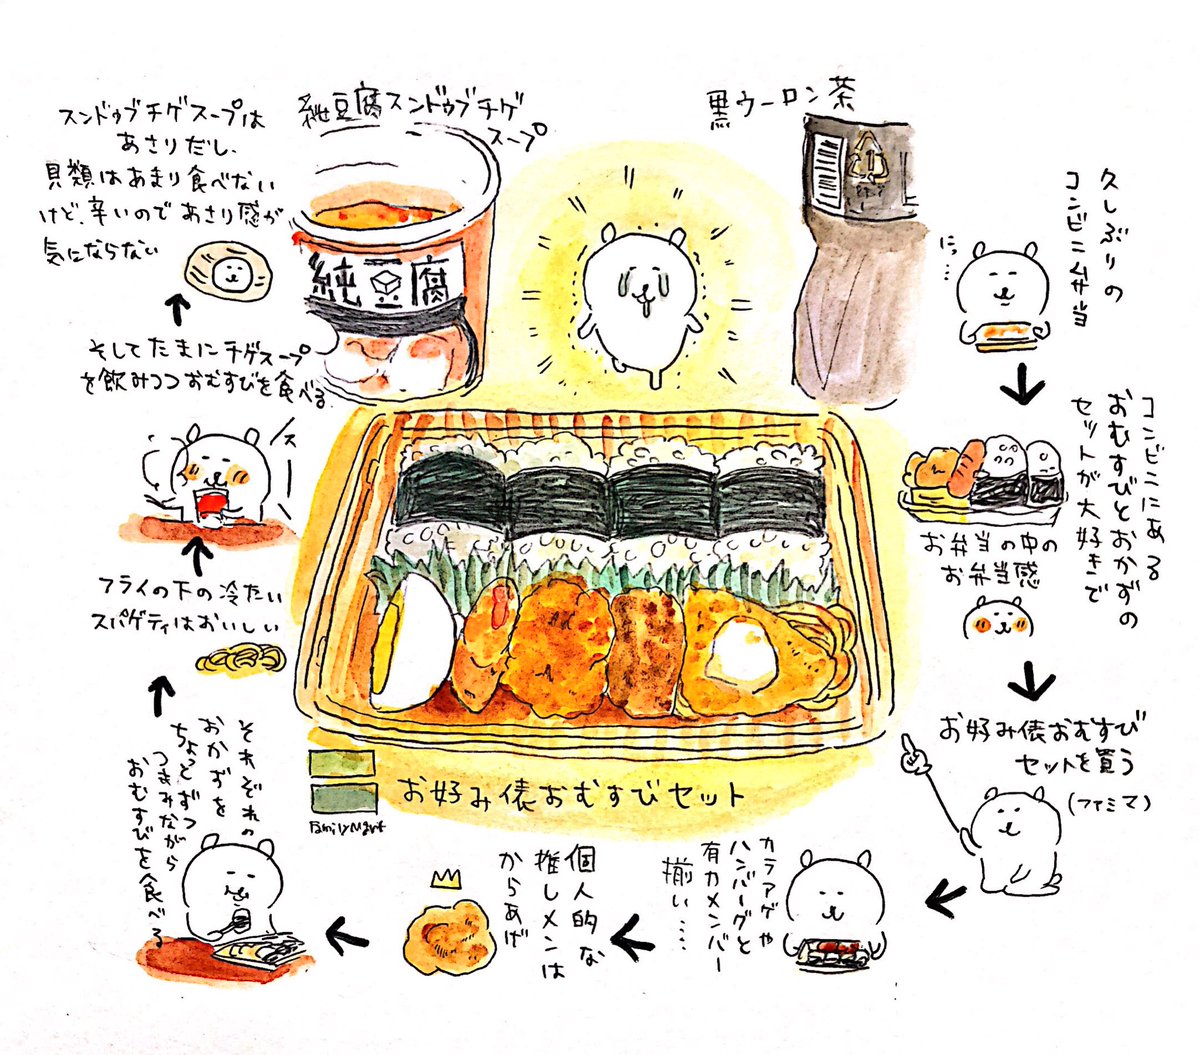 久しぶりの
コンビニ弁当
にっ…
コンビニにある
おむすびとおかずの
セットが大好きで
お弁当の中の
お弁当感
お好み俵おむすび
セットを買う
(ファミマ)
カラアゲや
ハンバーグと
有力メンバー
揃い……
個人的な
推しメンは
からあげ
それぞれの
おかずを
ちょっとずつ
つまみながら
おむすびを食べる
フライの下の冷たい
スパゲティはおいしい
そしてたまにチゲスープ
を飲みつつおむすびを食べる
スンドゥブチゲスープは
あさりだし、
貝類はあまり食べない
けど、辛いのであさり感が
気にならない
純豆腐スンドゥブチゲ
スープ
純豆腐
黒ウーロン茶
お好み俵おむすびセット
FamilyMart